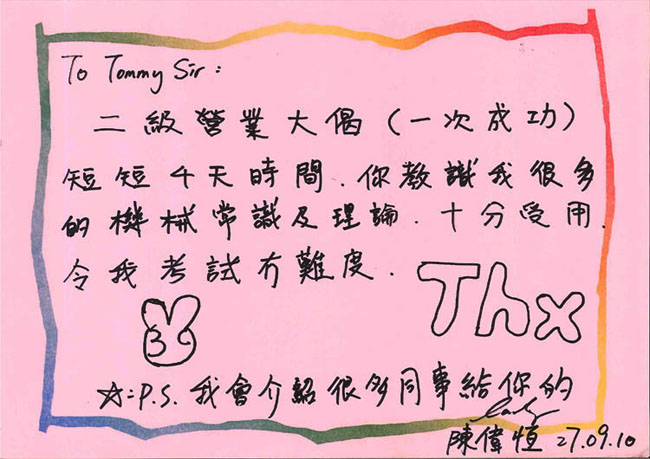 To Tommy Sir:
二級營業大偈(一次成功)
短短4天時間.你教識我很多
的機械常識及理論.十分受用.
令我考試冇難度.
Thx
☆:P.S.我會介紹很多同事給你的
陳偉恒 27.09.10